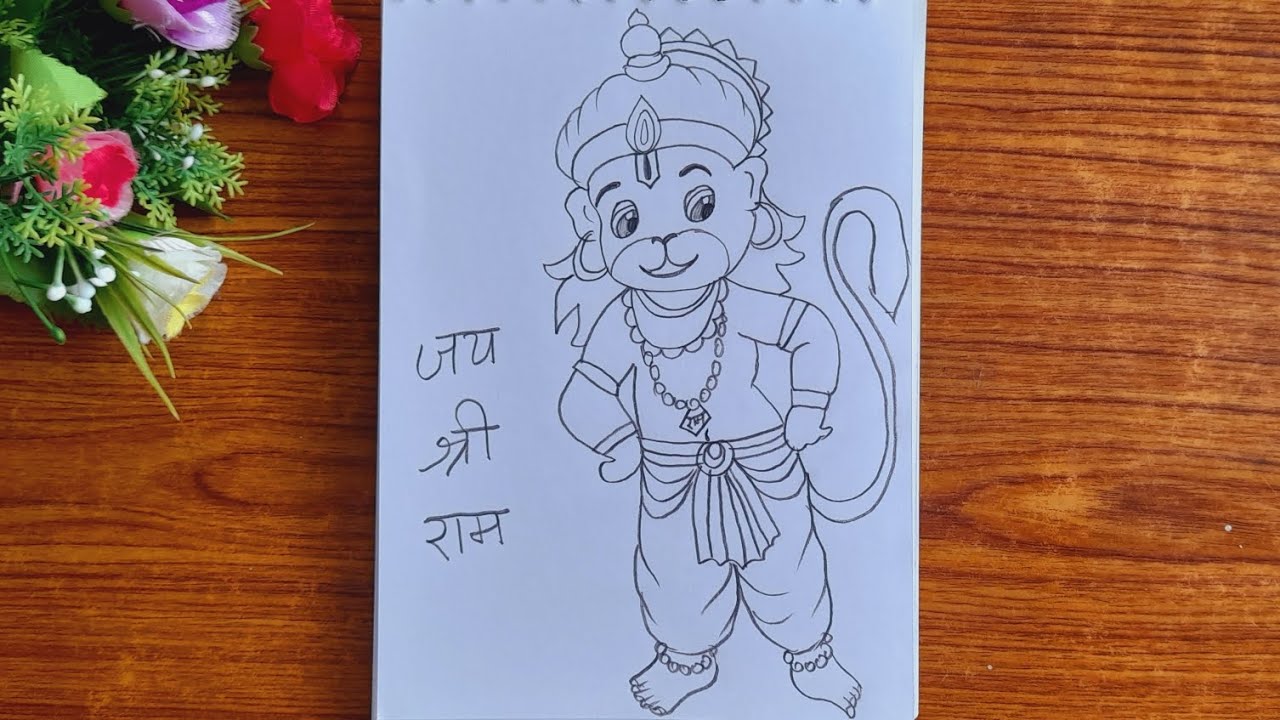 जय
श्री
राम
राम